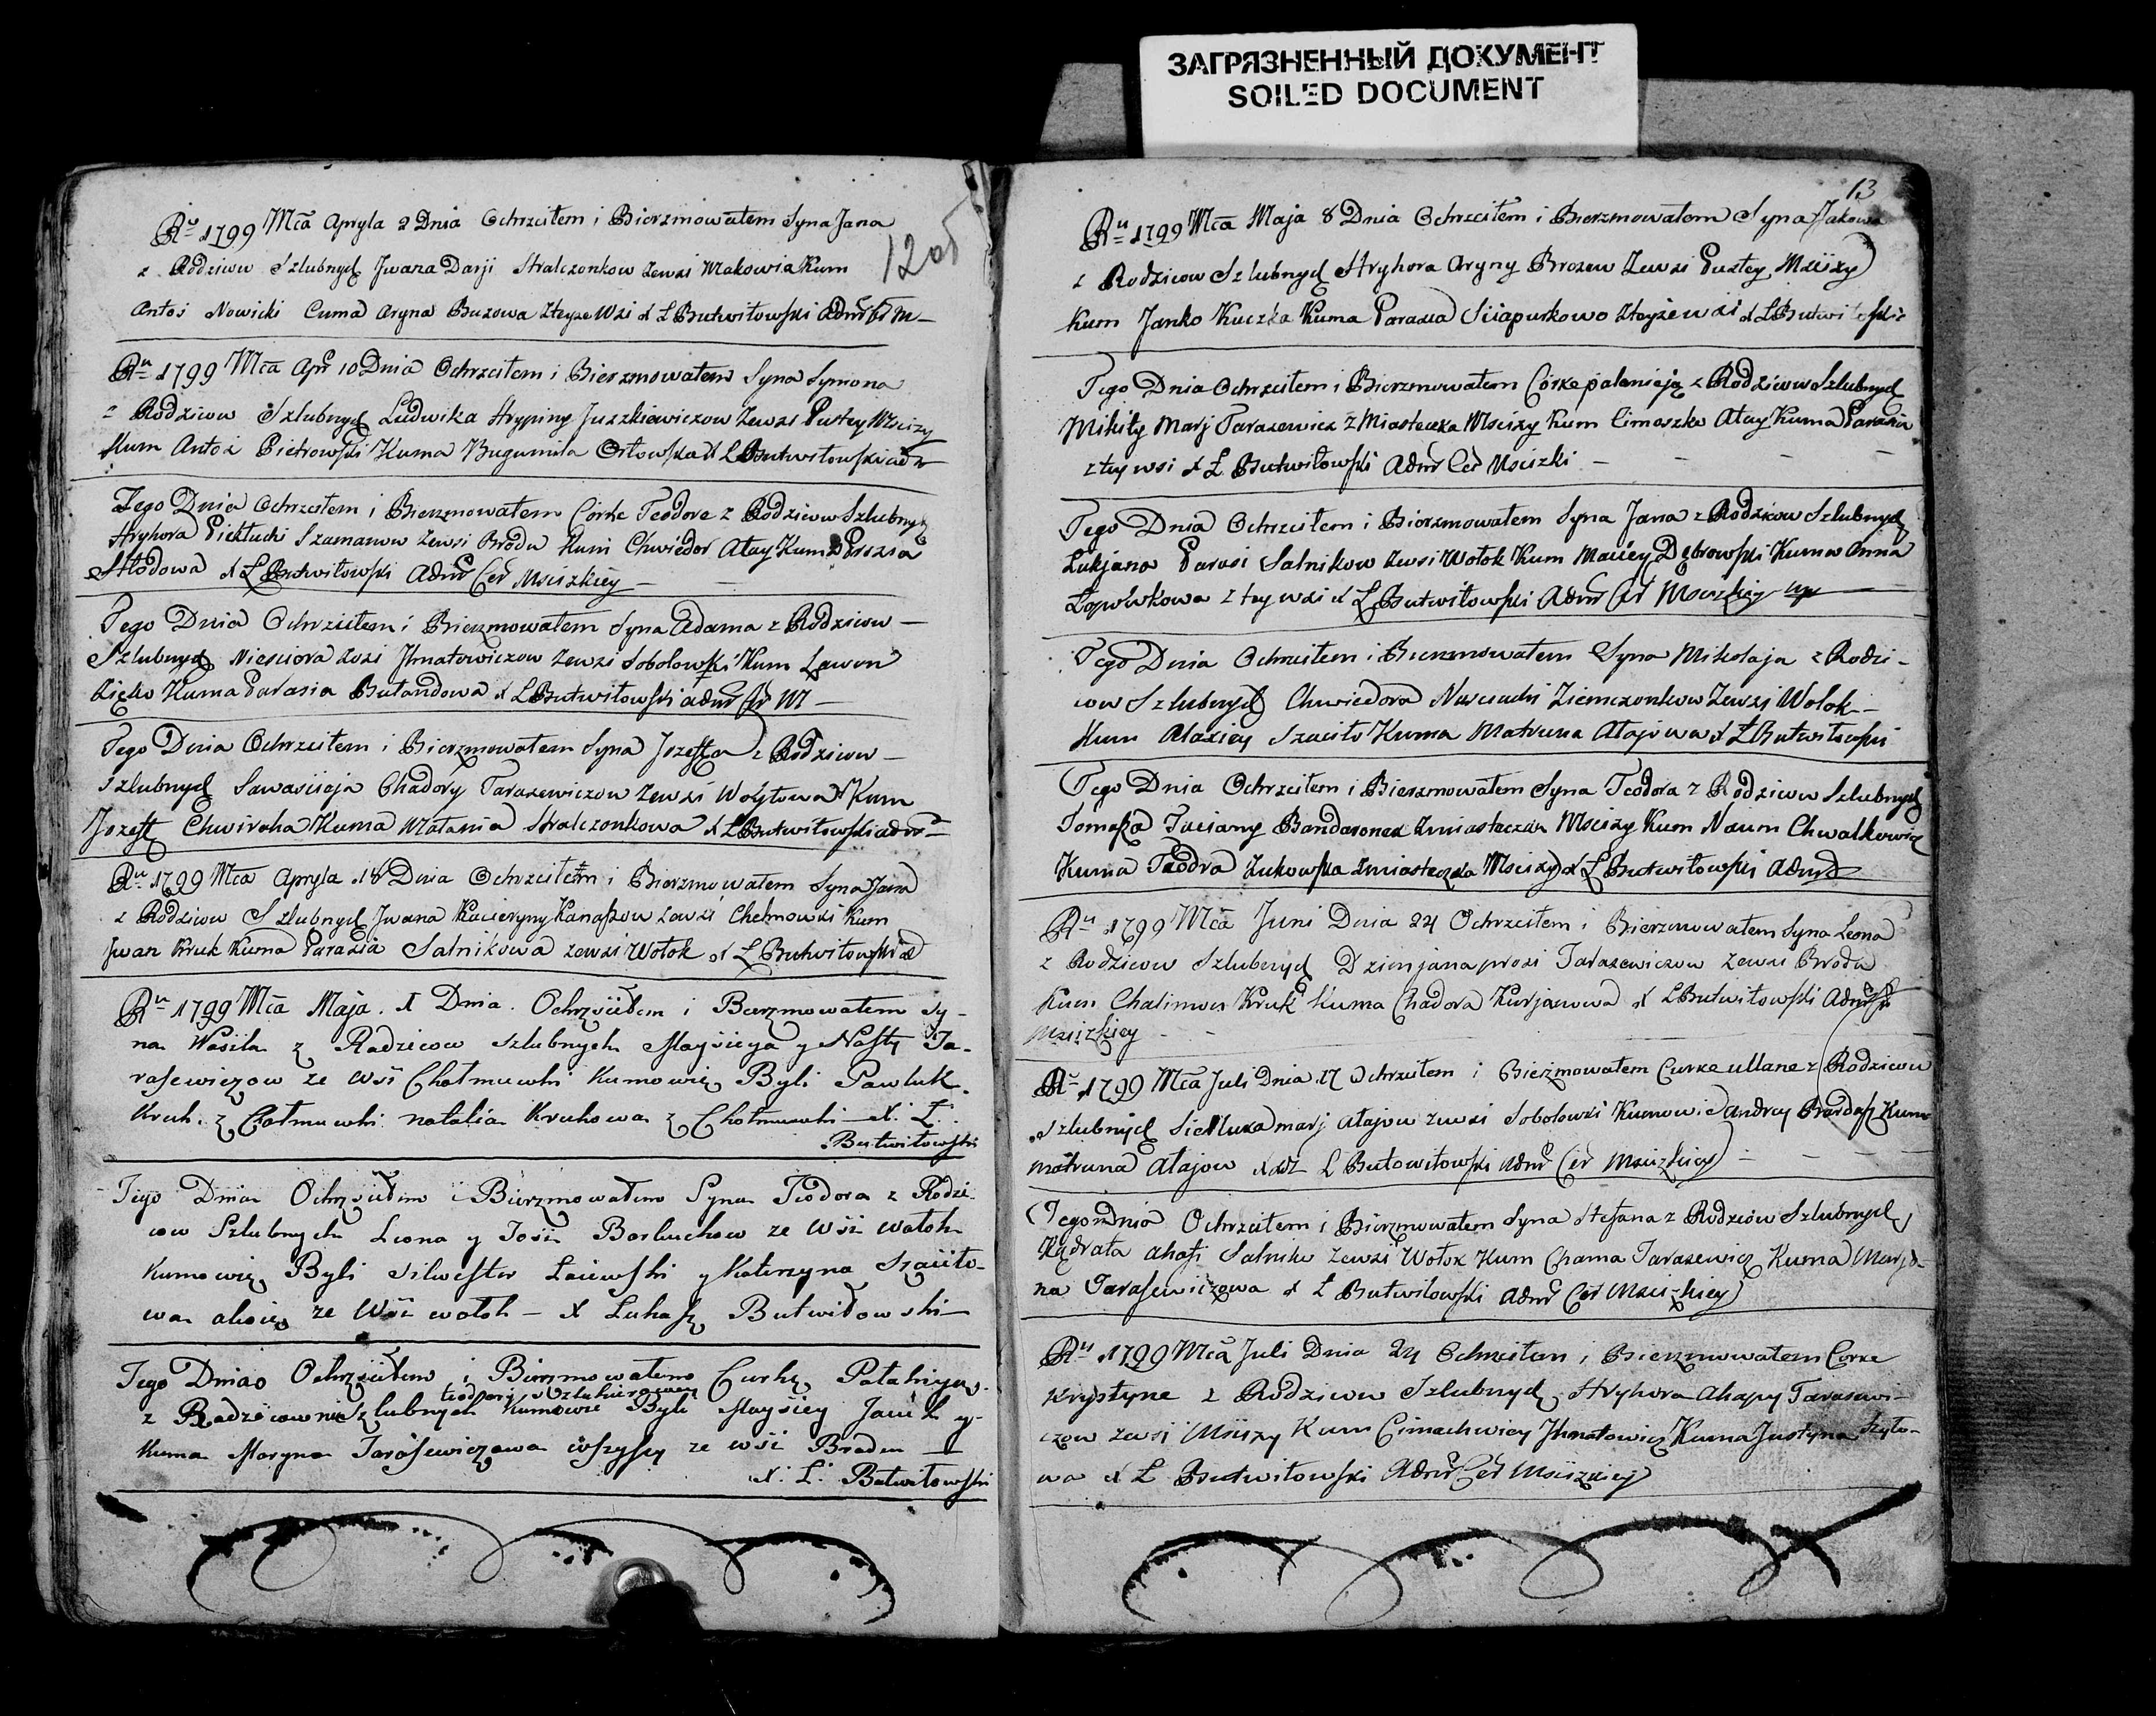 ЗАГРЯЗНЕННЫЙ ДОКУМЕНТ
SOILED DOCUMENT
12 об
Ru 1799 Mca Apryla 2 Dnia Ochrzciłem i Bierzmowałem Syna Jana
z Rodziców Szlubnych Jwana Darji Stralczonkow zewsi Makowia Kum
Antoś Nowicki Cuma Aryna Buzowa Wsi X Ł Butwiłowski
Ru 1799 Mca Apr 10 Dnia Ochrzciłem i Bierzmowałem Syna Symona
z Rodziców Szlubnych Ludwika Hrypiny Juszkiewiczow zewsi Pustey Mścizy
Kum Antoś Pietrowski Kuma Bugumiła Orłowska X Ł Butwiłowski adm
Tego Dnia Ochrzciłem i Bierzmowałem Córke Teodore z Rodziców Szlubnych
Hryhora Piekłuchi Szamanow zewsi Brodu Kum Chwiedor Atay Kuma
Hłodowa X Ł Butwiłowski Adm Cer Mścizkiey
Tego Dnia Ochrzciłem i Bierzmowałem Syna Adama z Rodziców
Szlubnych Niesciora Zosi Jhnatowiczow zewsi Sobolowki Kum Ławon
Kuma Parasia Bułandowa X Ł Butwiłowski adm Cer M
Tego Dnia Ochrzciłem i Bierzmowałem Syna Jozefa z Rodziców
szlubnych Sawascieja Chadory Tarasewiczow zewsi Woytowa Kum
Jozef Chwiroha Kuma Matania Stralczonkowa X Ł Butwiłowski adm
Ru 1799 Mca Apryla 18 Dnia Ochrzciłem i Bierzmowałem Syna Jana
z Rodziców Szlubnych Jwana Kacieryny Kanaszow zewsi Chelmowki Kum
Jwan Kruk Kuma Parasia Salnikowa zewsi Wołok X Ł Butwiłowski ad
Ru 1799 Mca Maja X Dnia Ochrzciłem i Bierzmowałem Sy-
na Wasila z Radzicow szlubnych Mayśieja y Nasty Ta-
rasewiczow ze Wśi Chołmuwki Kumowie Byli Pawluk
Kruk z Chołmuwki natalia Krukowa z Chołmuwki X. Ł.
Butwiłowski
Tego Dnia Ochrzciłem i Bierzmowałem Syna Teodora z Rodzi-
cow Szlubnych Leona y Zośi Borbuchow ze Wśi Wołok
Kumowie Byli Silwester Łaiewski y Katerzyna Szaciło-
wa oboie ze Wśi wołok - X Łukasz Butwiłowski
Tego Dnia Ochrzciłem i Bierzmowałem Curke Pałahiju
z Radzicow nieszlubnych Kumowie Byli Mayśiey Jacuk y
Kuma Maryna Tarasewiczowa wszyscy ze wśi Brodu
X. Ł. Butwiłowski
13
Ru 1799 Mca Maja 8 Dnia Ochrzciłem i Bierzmowałem Syna Jakowa
z Rodziców Szlubnych Hryhora Aryny Brozow zewsi Pustey Mścizy
Kum Janko Kuczka Kuma Parasia Sciapurkowo X Ł Butwiłowski
Tego Dnia Ochrzciłem i Bierzmowałem Córke z Rodziców Szlubnych
Mikity Marj Tarasewicz z Miasteczka Mścizy Kum Cimoszka Atay Kuma Parasia
z tey wsi X Ł Butwiłowski Adm Cer Mscizki
Tego Dnia Ochrzciłem i Bierzmowałem Syna Jana z Rodziców Szlubnych
Łukjana Parasi Salnikow zewsi Wołok Kum Maciey Dąbrowski Kuma Anna
z tey wsi X Ł Butwiłowski Adm Cer Mscizkiey
Tego Dnia Ochrzciłem i Bierzmowałem Syna Mikołaja z Rodzi-
cow Szlubnych Chwiedora Nasciuchi Ziemczonkow zewsi Wołok
Kum Alaxiey Szaciło Kuma Matruna Atajowa X Ł Butwiłowski
Tego Dnia Ochrzciłem i Bierzmowałem Syna Teodora z Rodziców Szlubnych
Tomasza Taciany Bandaronek zmiasteczka Mścizy Kum Naum Chwalkowicz
Kuma Teodra Zukowska zmiasteczka Mścizy X Ł Butwiłowski Adm
Ru 1799 Mca Juni Dnia 24 Ochrzciłem i Bierzmowałem Syna Leona
z Rodziców Szlubnych Dziemjana prosi Tarasewiczow zewsi Brodu
Kum Chalimon Kruk Kuma Chadora Kurjanowa X Ł Butwiłowski Adm
Mscizkiey
Ru 1799 Mca Juli Dnia 17 Ochrzciłem i Bierzmowałem Curke ullane z Rodziców
szlubnych marj Atajow zewsi Sobołowki Kumowie Andrey Kuma
matruna Atajow X Ł Butowiłowski Adm Cer Mscizkiey
Tego Dnia Ochrzciłem i Bierzmowałem Syna Stefana z Rodziców Szlubnych
Kądrata Ahafi Salnikow zewsi Wołok Kum Chama Tarasewicz Kuma Marja-
na Tarasewiczowa X Ł Butwiłowski Adm Cer Mscizkiey
Ru 1799 Mca Juli Dnia 24 Ochrzciłem i Bierzmowałem Corke
Krystyne z Rodziców Szlubnych Hryhora Ahapy Tarasewi-
czow zewsi Mścizy Kum Cimachwiey Jhnatowicz Kuma Justyna Szyło-
wa X Ł Butwiłowski Adm Cer Mscizkiey